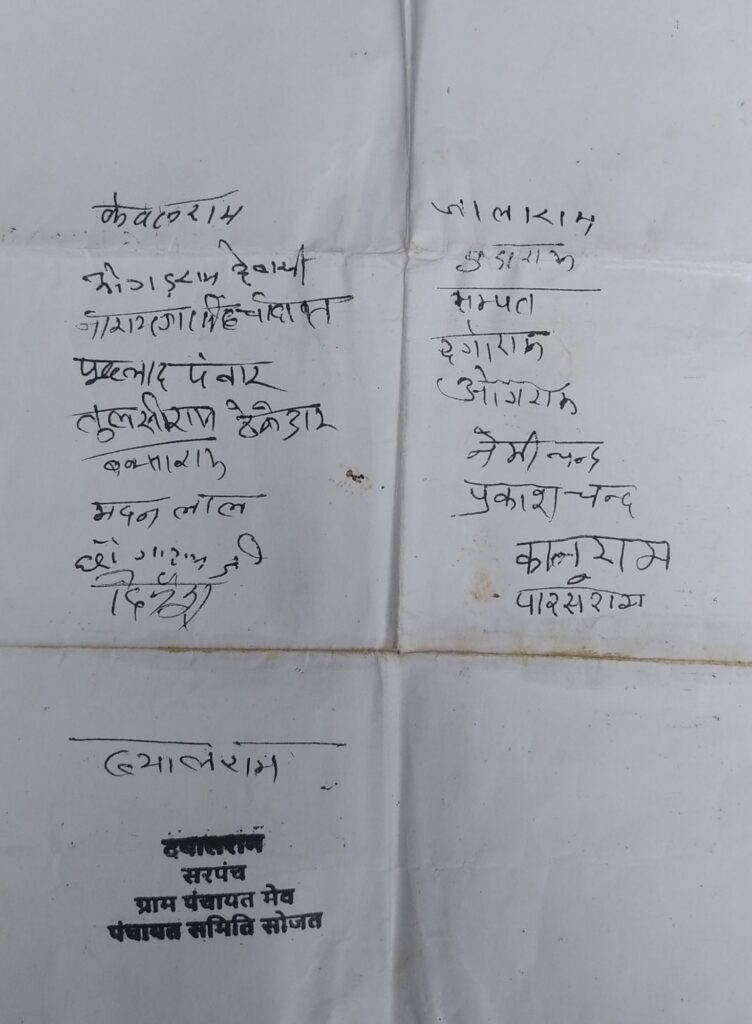 केवलराम
देवासी
प्रहलाद पंवार
तुलसीराम ठेकेदार
मदन लाल
जी
जालाराम
सम्पत
दुर्गाराम
ओगाराम
नेमीचन्द
प्रकाशचन्द
कालुराम
पारसराम
दयालराम
दयालराम
सरपंच
ग्राम पंचायत मेव
पंचायत समिति सोजत